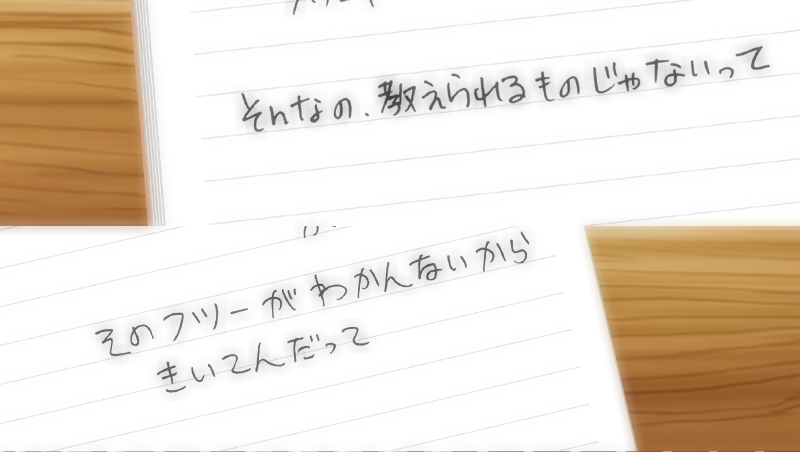 そんなの、教えられるものじゃないって
そのフツーがわかんないから
きいてんだって